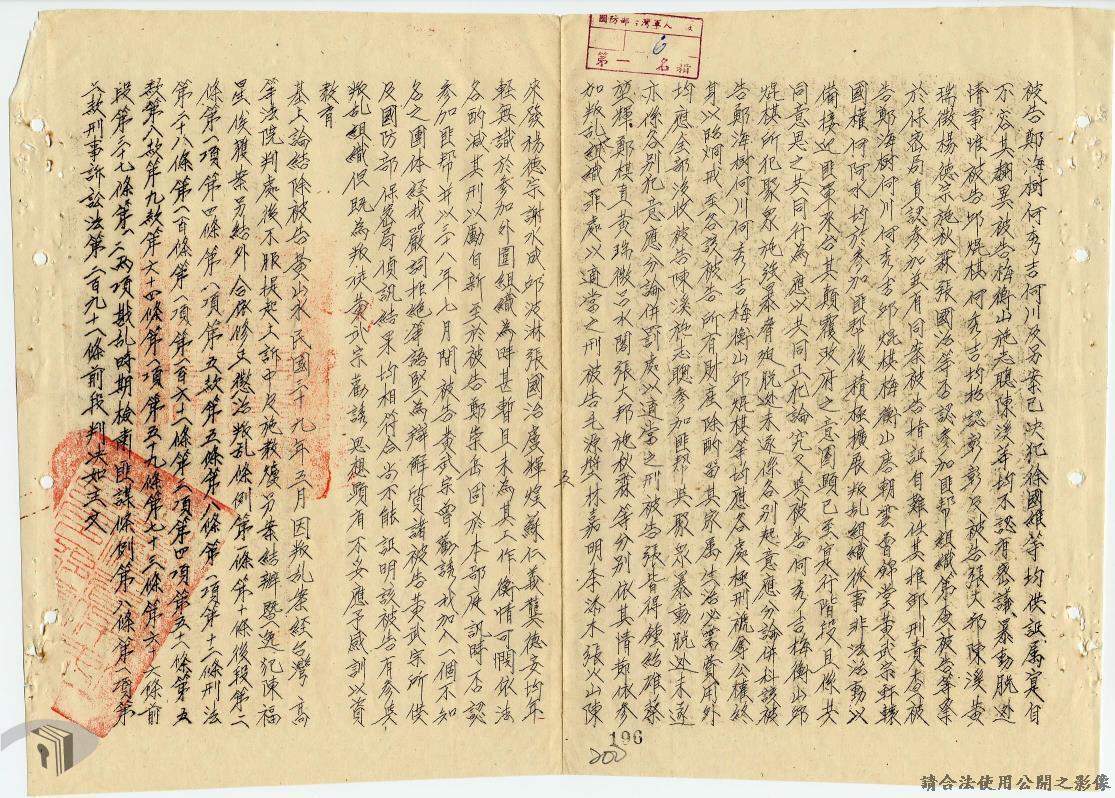 被告鄭海樹何秀吉何川及另案已決犯徐國維等均供証屬實自
不容其翻異被告梅衡山施志聰陳溪等均不認有密議暴動脫逃
情事惟被告邱焜棋何秀吉均指認彰彰及被告張大邦陳溪黃
瑞徵楊德宗施秋霖張國治等否認參加匪幫組織第查被告等案
於保密局直認參加並有同案被告指証自難任其推卸刑責查被
告鄭海樹何川何秀吉邱焜棋梅衡山唐朝雲曾錦堂黃武宗軒轅
國權何阿水均於參加匪幫後積極擴展叛乱組織從事非法活動以
備接近匪軍來台其顛覆政府之意圖顯已至實行階段且係共
同意思之共同行為應以共同正犯論究又與被告何秀吉梅衡山邱
焜棋所犯聚眾施強暴脅迫脫逃未遂係各別起意應分論併科該被
告鄭海樹何川何秀吉梅衡山邱焜棋等均應各處極刑褫奪公權終
身以昭炯戒至各該被告所有財產除酌留其家屬生活必需費用外
均應全部沒收被告陳溪施志聰參加匪幫與聚眾暴動脫逃未遂
亦係各別犯意應分論併罰處以適當之刑被告張皆得鍾始雄蔡
堃輝鄭棋真黃瑞徵呂水閣張大邦施秋霖等分別依其情節依參
加叛乱組織罪處以適當之刑被告毛源興林嘉明李添木張火山陳
來發楊德宗謝水成邱波淋張國治盧輝煌蘇仁義龔德安均年
輕無識於參加外圍組織為時甚暫且未為其工作衡情可憫依法
各酌減其刑以勵自新至於被告鄭崇岳固於本部庭訊時否認
參加匪幫并以三十八年七月間被告黃武宗曾勸該我加入一個不知
名之團体經我嚴詞拒絕等語堅為辯解質諸被告黃武宗所供
及國防部保密局偵訊結果均相符合尚不能証明該被告有參與
叛乱組織但既為叛徒黃武宗勸誘思想顯有不妥應予感訓以資
教育
基上論結除被告黃山水民國三十九年三月因叛乱案經台灣高
等法院判處後不服提起上訴中及施教爐另案結辦暨逃犯陳福
星俟獲案另結外合依修正懲治叛乱條例第二條第十條後段第二
條第一項第四條第八項第五款第五條第八條第一項第十二條刑法
第二十八條第一百條第一項第一百六十一條第二項第四項第五十一條第五
款第八款第九款第六十四條第一項第五十九條第七十三條第六十六條前
段第三十七條第一二兩項戡乱時期檢肅匪諜條例第八條第一項第
二款刑事訴訟法第二百九十一條前段判決如主文
196
200
請合法使用公開之影像